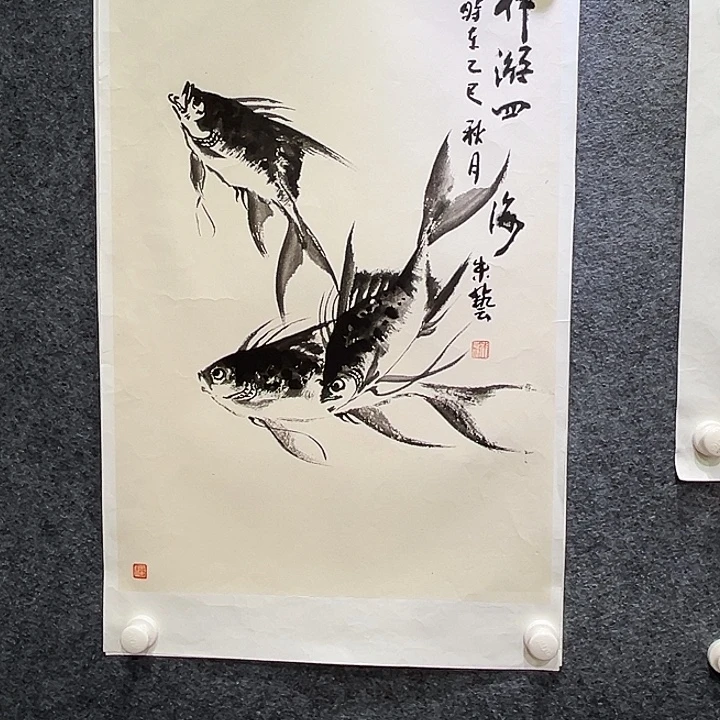 游四海
時在乙巳秋月
朱藝